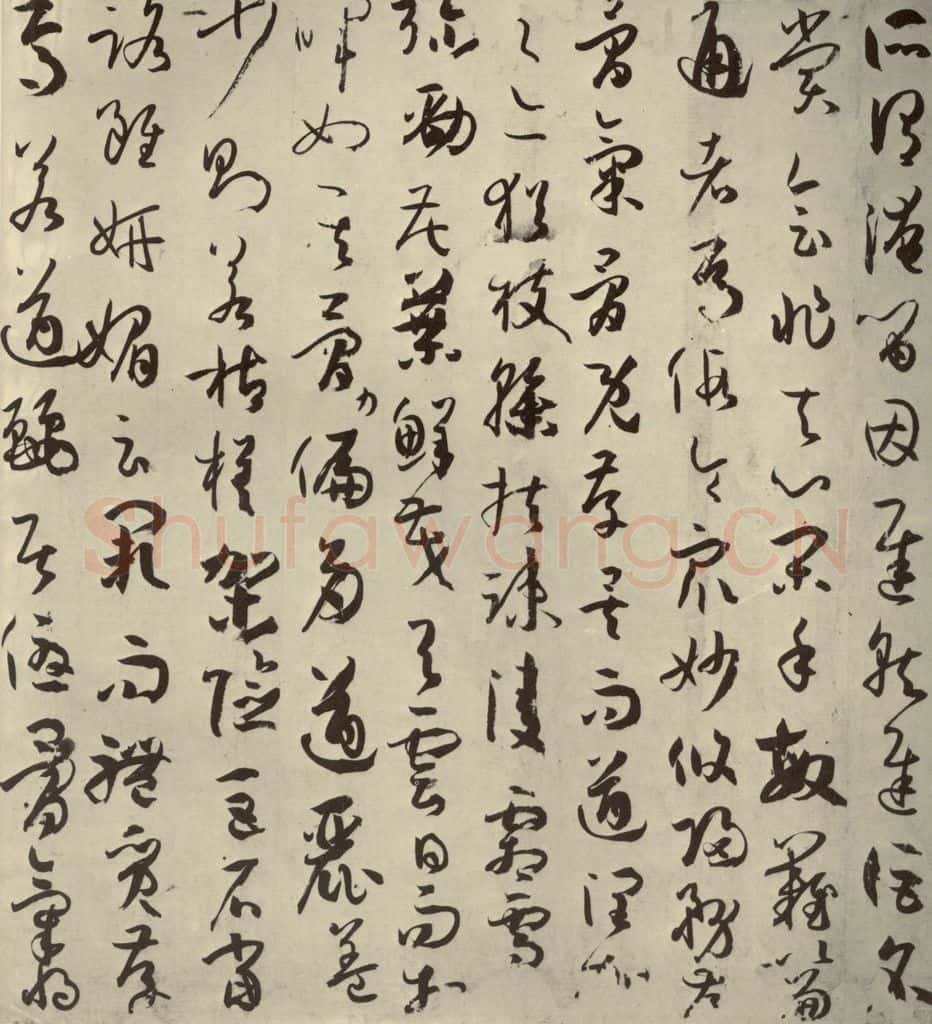 所謂淹留因遲就遲詎名
賞會非夫心閑手敏難以兼
通者焉假令眾妙攸歸務存
骨氣骨既存矣而遒潤加
之亦猶枝幹扶疏凌霜雪
彌勁花葉鮮茂與雲日而相
暉如其骨力偏多遒麗蓋
少則若枯槎架險巨石當
路雖妍媚云闕而體質存
焉若遒麗居優骨氣將
Shufawang.CN